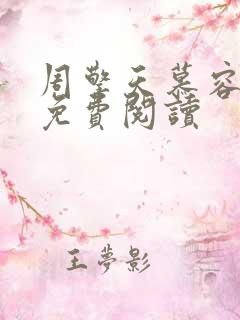 周擎天慕容
免費閱讀
王夢影